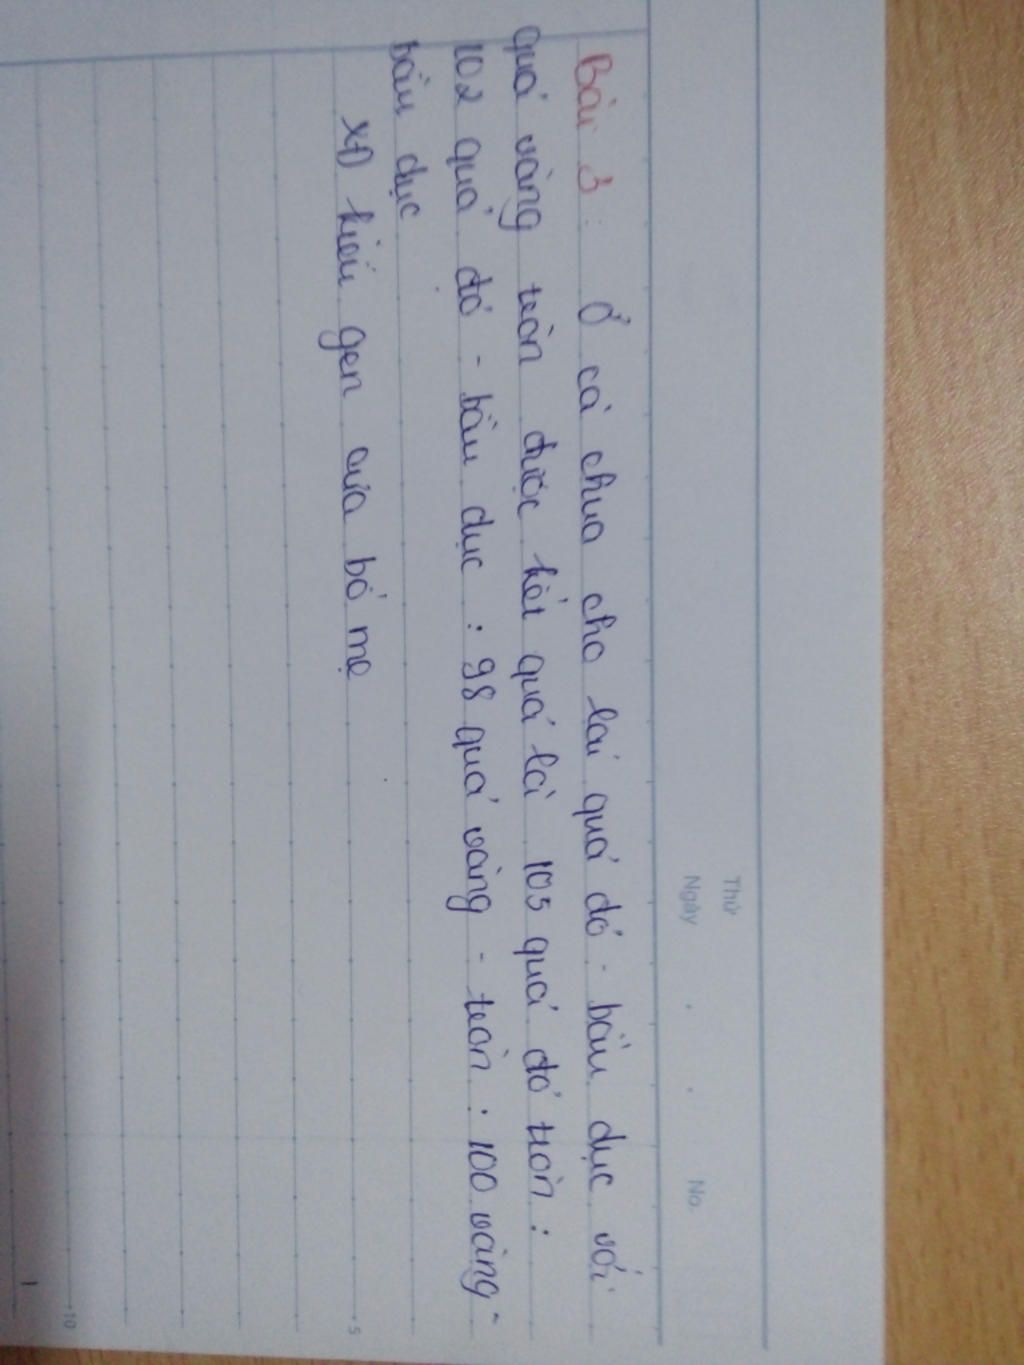 Thứ
Ngày . . No.
Bài 3 : Ở cà chua cho lai quả đỏ - bầu dục với
quả vàng tròn được kết quả là 105 quả đỏ tròn :
102 quả đỏ - bầu dục : 98 quả vàng - tròn : 100 vàng -
bầu dục
XĐ kiểu gen của bố mẹ
5
10